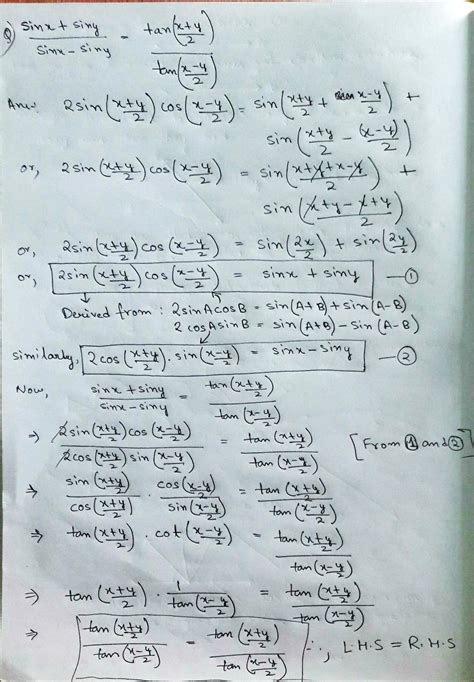 Q) (sinx + siny)/(sinx - siny) = tan((x+y)/2)/tan((x-y)/2)
Ans:- 2sin((x+y)/2) cos((x-y)/2) = sin((x+y)/2 + (x-y)/2) +
sin((x+y)/2 - (x-y)/2)
or, 2sin((x+y)/2) cos((x-y)/2) = sin((x+y+x-y)/2) +
sin((x+y-x+y)/2)
or, 2sin((x+y)/2) cos((x-y)/2) = sin(2x/2) + sin(2y/2)
or, 2sin((x+y)/2) cos((x-y)/2) = sinx + siny —①
Derived from : 2sinAcosB = sin(A+B) + sin(A-B)
2cosAsinB = sin(A+B) - sin(A-B)
similarly, 2cos((x+y)/2) . sin((x-y)/2) = sinx - siny —②
Now, (sinx + siny)/(sinx - siny) = tan((x+y)/2)/tan((x-y)/2)
⇒ 2sin((x+y)/2) cos((x-y)/2)/2cos((x+y)/2) sin((x-y)/2) = tan((x+y)/2)/tan((x-y)/2) [From ① and ②]
⇒ sin((x+y)/2)/cos((x+y)/2) . cos((x-y)/2)/sin((x-y)/2) = tan((x+y)/2)/tan((x-y)/2)
⇒ tan((x+y)/2) . cot((x-y)/2) = tan((x+y)/2)/tan((x-y)/2)
⇒ tan((x+y)/2) . 1/tan((x-y)/2) = tan((x+y)/2)/tan((x-y)/2)
⇒ tan((x+y)/2)/tan((x-y)/2) = tan((x+y)/2)/tan((x-y)/2) ∴, L.H.S = R.H.S